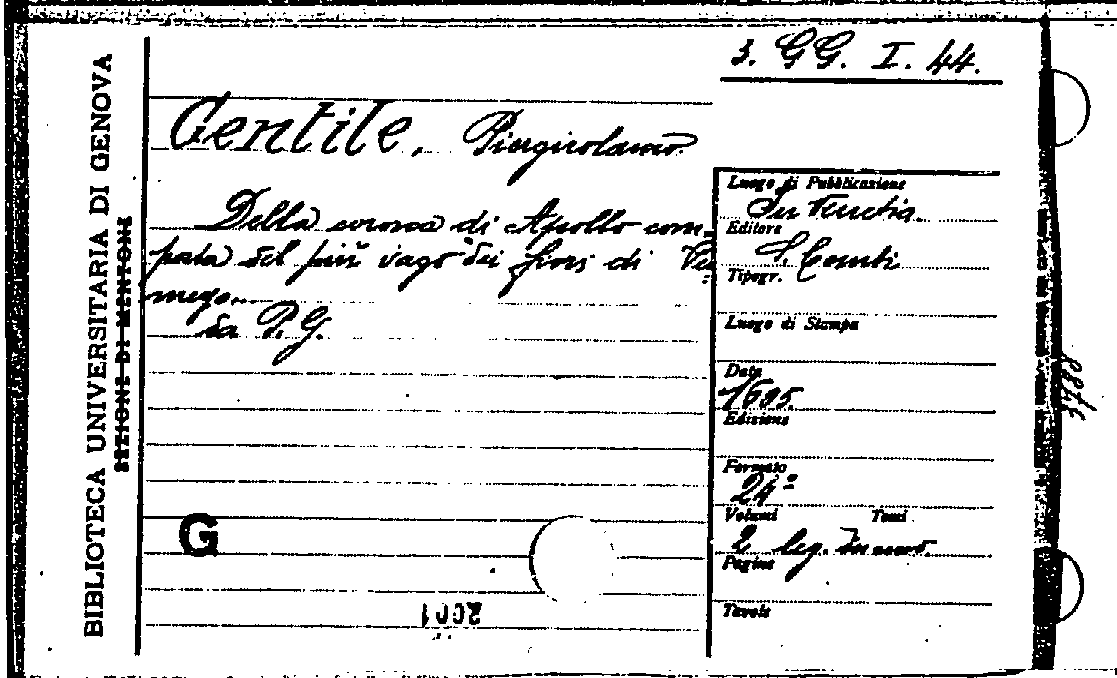 3. GG. I. 44.
BIBLIOTECA UNIVERSITARIA DI GENOVA
SEZIONE DI MENTONE
Gentile, Piergirolamo
Della corona di Apollo com-
posta del più vago dei fiori di Per
mego...
da P. G.
G
2001
Luogo di Pubblicazione
In Venetia
Editore
S. Combi
Tipogr.
Luogo di Stampa
Data
1605.
Edizione
Formato
24º
Volumi Tomi
2 leg. in uno.
Pagine
Tavole
3780